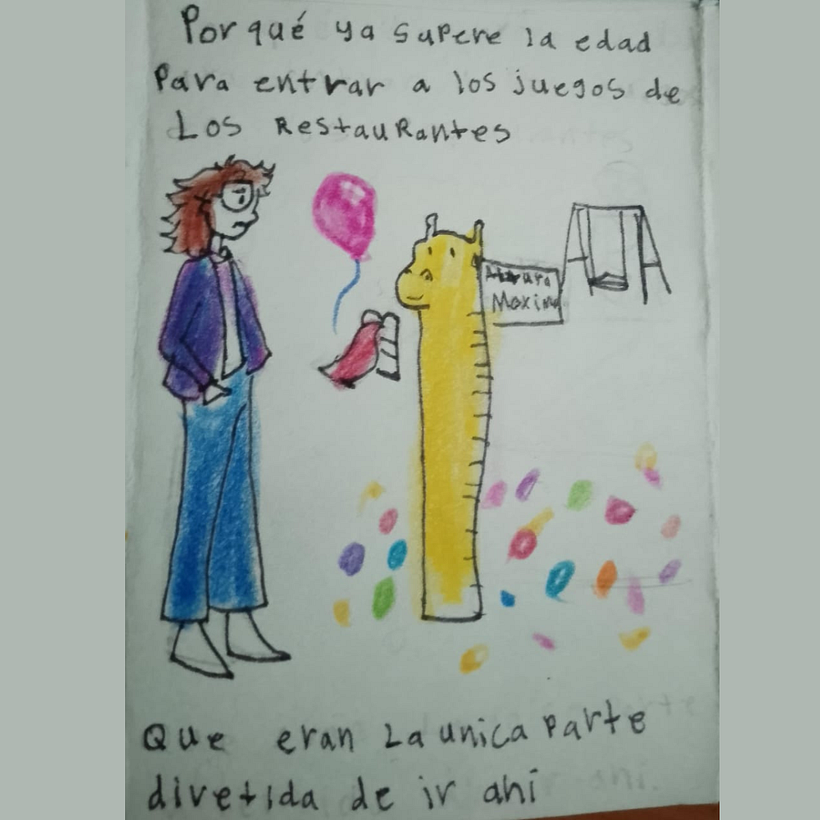 Por qué ya supere la edad
Para entrar a los juegos de
Los Restaurantes
Altura
Maxima
Que eran La unica Parte
divetida de ir ahí